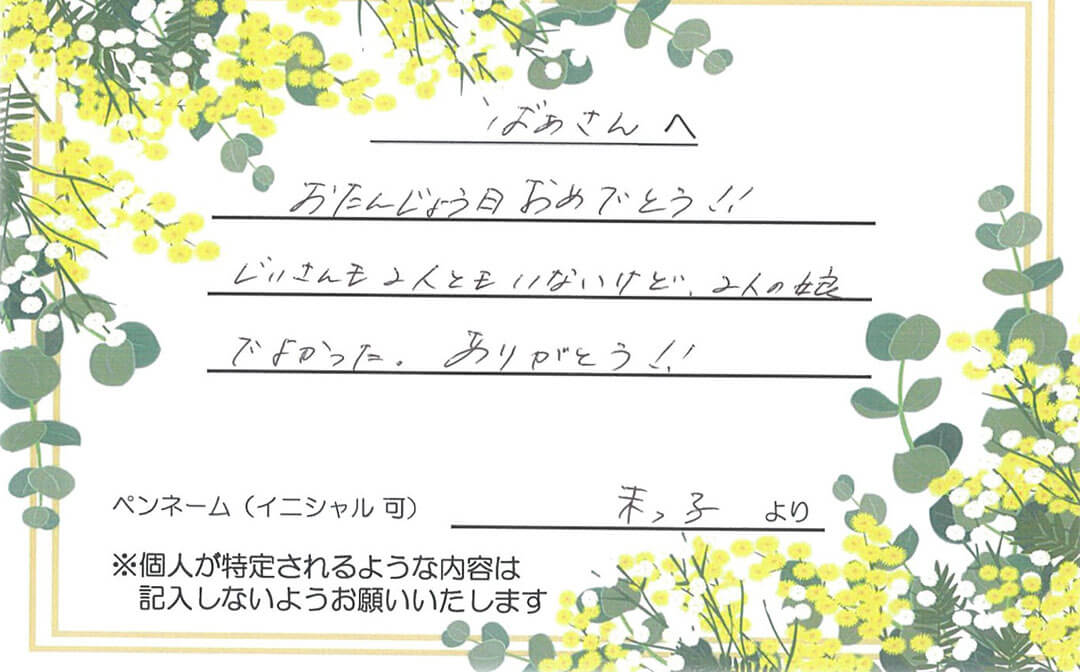 ばあさんへ
おたんじょう日おめでとう!!
じいさんも2人ともいないけど、2人の娘
でよかった。ありがとう!!
ペンネーム（イニシャル 可） 末っ子 より
※個人が特定されるような内容は
記入しないようお願いいたします